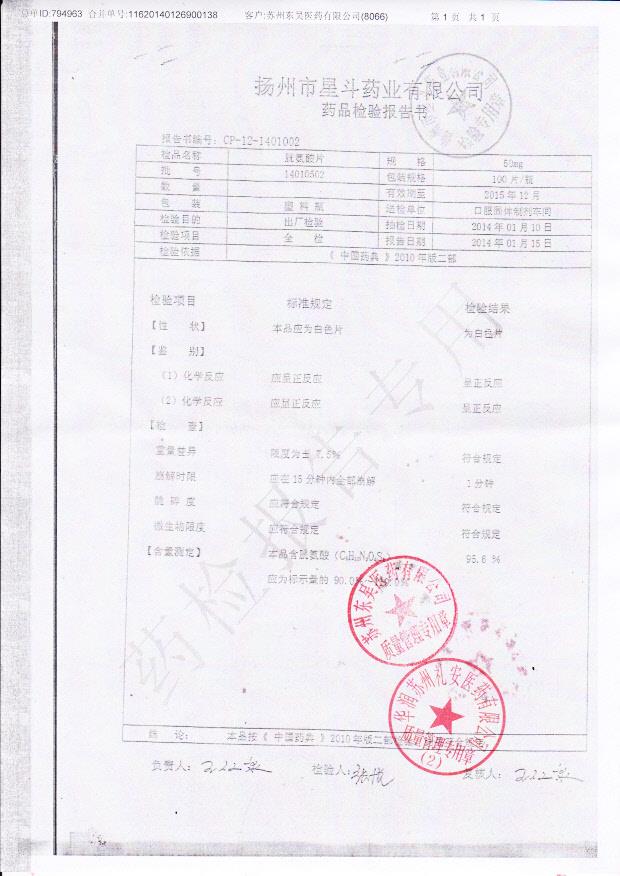 单ID:794963 合并单号:11620140126900138 客户:苏州东吴医药有限公司(8066) 第 1 页 共 1 页
扬州市星斗药业有限公司
药品检验报告书
报告书编号: CP-12-1401002
检品名称 胱氨酸片 规 格 50mg
批 号 14010502 包装规格 100 片/瓶
数 量 有效期至 2015 年 12 月
包 装 塑 料 瓶 送检单位 口服固体制剂车间
检验目的 出厂检验 抽检日期 2014 年 01 月 10 日
检验项目 全 检 报告日期 2014 年 01 月 15 日
检验依据 《 中国药典 》2010 年版二部
检验项目 标准规定 检验结果
【性 状】 本品应为白色片 为白色片
【鉴 别】
(1) 化学反应 应显正反应 呈正反应
(2) 化学反应 应显正反应 呈正反应
【检 查】
重量差异 限度为± 7.5% 符合规定
崩解时限 应在 15 分钟内全部崩解 1 分钟
脆 碎 度 应符合规定 符合规定
微生物限度 应符合规定 符合规定
【含量测定】 本品含胱氨酸 (C₆H₁₂N₂O₄S₂) 95.6 %
应为标示量的 90.0%
药检报告专用
苏州东吴医药有限公司
质量管理专用章
华润苏州礼安医药有限公司
质量管理专用章
(2)
结 论: 本品按《 中国药典 》2010 年版二部
负责人: 检验人: 复核人: